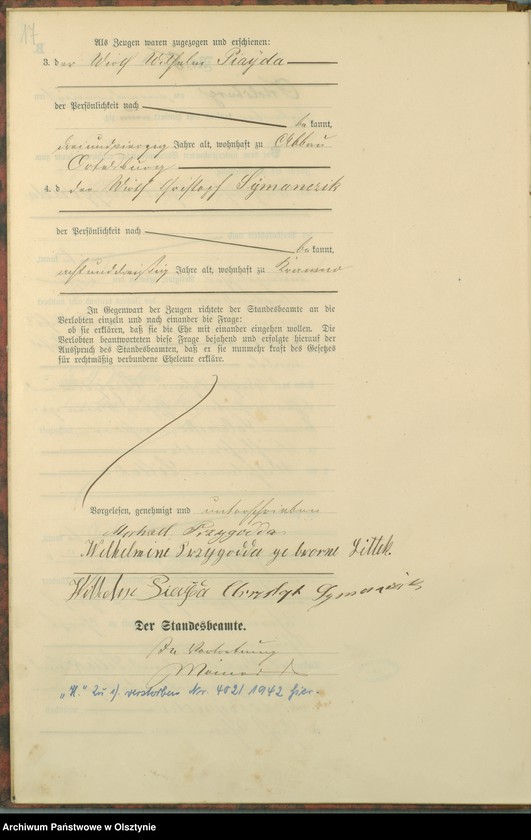 17
Als Zeugen waren zugezogen und erschienen:
3. der Wirth Wilhelm Przyda
der Persönlichkeit nach
be kannt,
dreiundvierzig Jahre alt, wohnhaft zu Abbau
Ortelsburg
4. der Wirth Christoph Symanczik
der Persönlichkeit nach
be kannt,
achtunddreißig Jahre alt, wohnhaft zu
In Gegenwart der Zeugen richtete der Standesbeamte an die
Verlobten einzeln und nach einander die Frage:
ob sie erklären, daß sie die Ehe mit einander eingehen wollen. Die
Verlobten beantworteten diese Frage bejahend und erfolgte hierauf der
Ausspruch des Standesbeamten, daß er sie nunmehr kraft des Gesetzes
für rechtmäßig verbundene Eheleute erkläre.
Vorgelesen, genehmigt und unterschrieben
Michael Przygodda
Wilhelmine Przygodda geborne Littek.
Wilhelm Symanczik
Der Standesbeamte.
In Vertretung
"H." Zu verstorben Nr. 402/1942 hier.
Archiwum Państwowe w Olsztynie